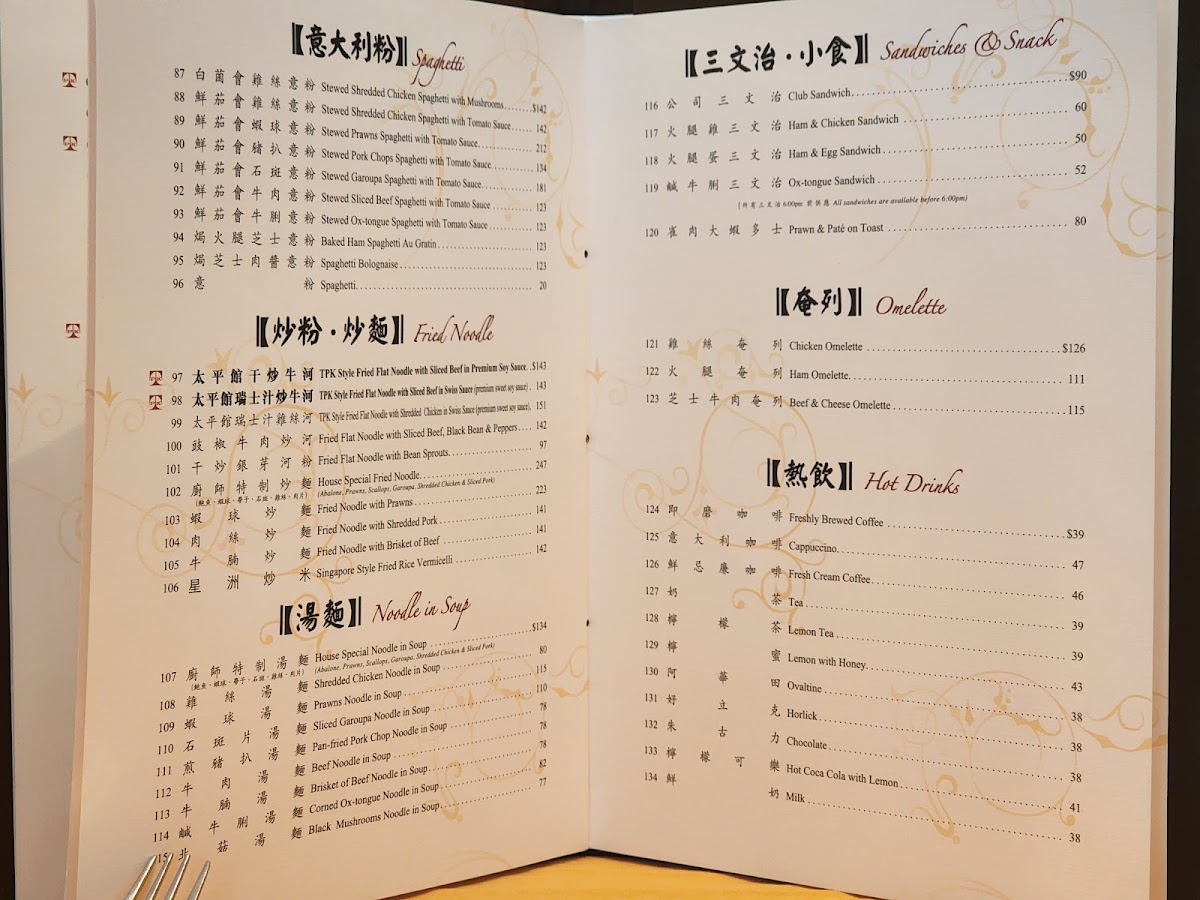 【意大利粉】 Spaghetti
87 白菌會雞絲意粉 Stewed Shredded Chicken Spaghetti with Mushrooms........$142
88 鮮茄會雞絲意粉 Stewed Shredded Chicken Spaghetti with Tomato Sauce...... 142
89 鮮茄會蝦球意粉 Stewed Prawns Spaghetti with Tomato Sauce.................. 212
90 鮮茄會豬扒意粉 Stewed Pork Chops Spaghetti with Tomato Sauce........... 134
91 鮮茄會石斑意粉 Stewed Garoupa Spaghetti with Tomato Sauce............... 181
92 鮮茄會牛肉意粉 Stewed Sliced Beef Spaghetti with Tomato Sauce ........... 123
93 鮮茄會牛脷意粉 Stewed Ox-tongue Spaghetti with Tomato Sauce ............ 123
94 焗火腿芝士意粉 Baked Ham Spaghetti Au Gratin ........................ 123
95 焗芝士肉醬意粉 Spaghetti Bolognaise .................................. 123
96 意粉 Spaghetti............................................. 20
【炒粉·炒麵】 Fried Noodle
97 太平館干炒牛河 TPK Style Fried Flat Noodle with Sliced Beef in Premium Soy Sauce..$143
98 太平館瑞士汁炒牛河 TPK Style Fried Flat Noodle with Sliced Beef in Swiss Sauce (premium sweet soy sauce) . 143
99 太平館瑞士汁雞絲河 TPK Style Fried Flat Noodle with Shredded Chicken in Swiss Sauce (premium sweet soy sauce). 151
100 豉椒牛肉炒河 Fried Flat Noodle with Sliced Beef, Black Bean & Peppers.... 142
101 干炒銀芽河粉 Fried Flat Noodle with Bean Sprouts........................ 97
102 廚師特制炒麵 House Special Fried Noodle................................ 247
(鮑魚、蝦球、帶子、石斑、雞絲、肉片) (Abalone, Prawns, Scallops, Garoupa, Shredded Chicken & Sliced Pork)
103 蝦球炒麵 Fried Noodle with Prawns ................................ 223
104 肉絲炒麵 Fried Noodle with Shredded Pork ......................... 141
105 牛腩炒麵 Fried Noodle with Brisket of Beef ........................ 141
106 星洲炒米 Singapore Style Fried Rice Vermicelli ..................... 142
【湯麵】 Noodle in Soup
107 廚師特制湯麵 House Special Noodle in Soup ............................ $134
(鮑魚、蝦球、帶子、石斑、雞絲、肉片) (Abalone, Prawns, Scallops, Garoupa, Shredded Chicken & Sliced Pork)
108 雞絲湯麵 Shredded Chicken Noodle in Soup ........................ 80
109 蝦球湯麵 Prawns Noodle in Soup .................................. 115
110 石斑片湯麵 Sliced Garoupa Noodle in Soup ........................... 110
111 煎豬扒湯麵 Pan-fried Pork Chop Noodle in Soup ..................... 78
112 牛肉湯麵 Beef Noodle in Soup ..................................... 78
113 牛腩湯麵 Brisket of Beef Noodle in Soup........................... 78
114 鹹牛脷湯麵 Corned Ox-tongue Noodle in Soup........................ 82
15 北菇湯麵 Black Mushrooms Noodle in Soup......................... 77
【三文治·小食】 Sandwiches & Snack
116 公司三文治 Club Sandwich............................................$90
117 火腿雞三文治 Ham & Chicken Sandwich ............................... 60
118 火腿蛋三文治 Ham & Egg Sandwich.................................... 50
119 鹹牛脷三文治 Ox-tongue Sandwich .................................... 52
(所有三文治 6:00pm 前供應 All sandwiches are available before 6:00pm)
120 雀肉大蝦多士 Prawn & Paté on Toast ................................... 80
【奄列】 Omelette
121 雞絲奄列 Chicken Omelette ........................................$126
122 火腿奄列 Ham Omelette............................................ 111
123 芝士牛肉奄列 Beef & Cheese Omelette ................................. 115
【熱飲】 Hot Drinks
124 即磨咖啡 Freshly Brewed Coffee ...................................$39
125 意大利咖啡 Cappuccino............................................. 47
126 鮮忌廉咖啡 Fresh Cream Coffee....................................... 46
127 奶茶 Tea ..................................................... 39
128 檸檬茶 Lemon Tea .............................................. 39
129 檸蜜 Lemon with Honey....................................... 43
130 阿華田 Ovaltine ................................................ 38
131 好立克 Horlick.................................................. 38
132 朱古力 Chocolate ............................................... 38
133 檸檬可樂 Hot Coca Cola with Lemon............................... 41
134 鮮奶 Milk .................................................... 38